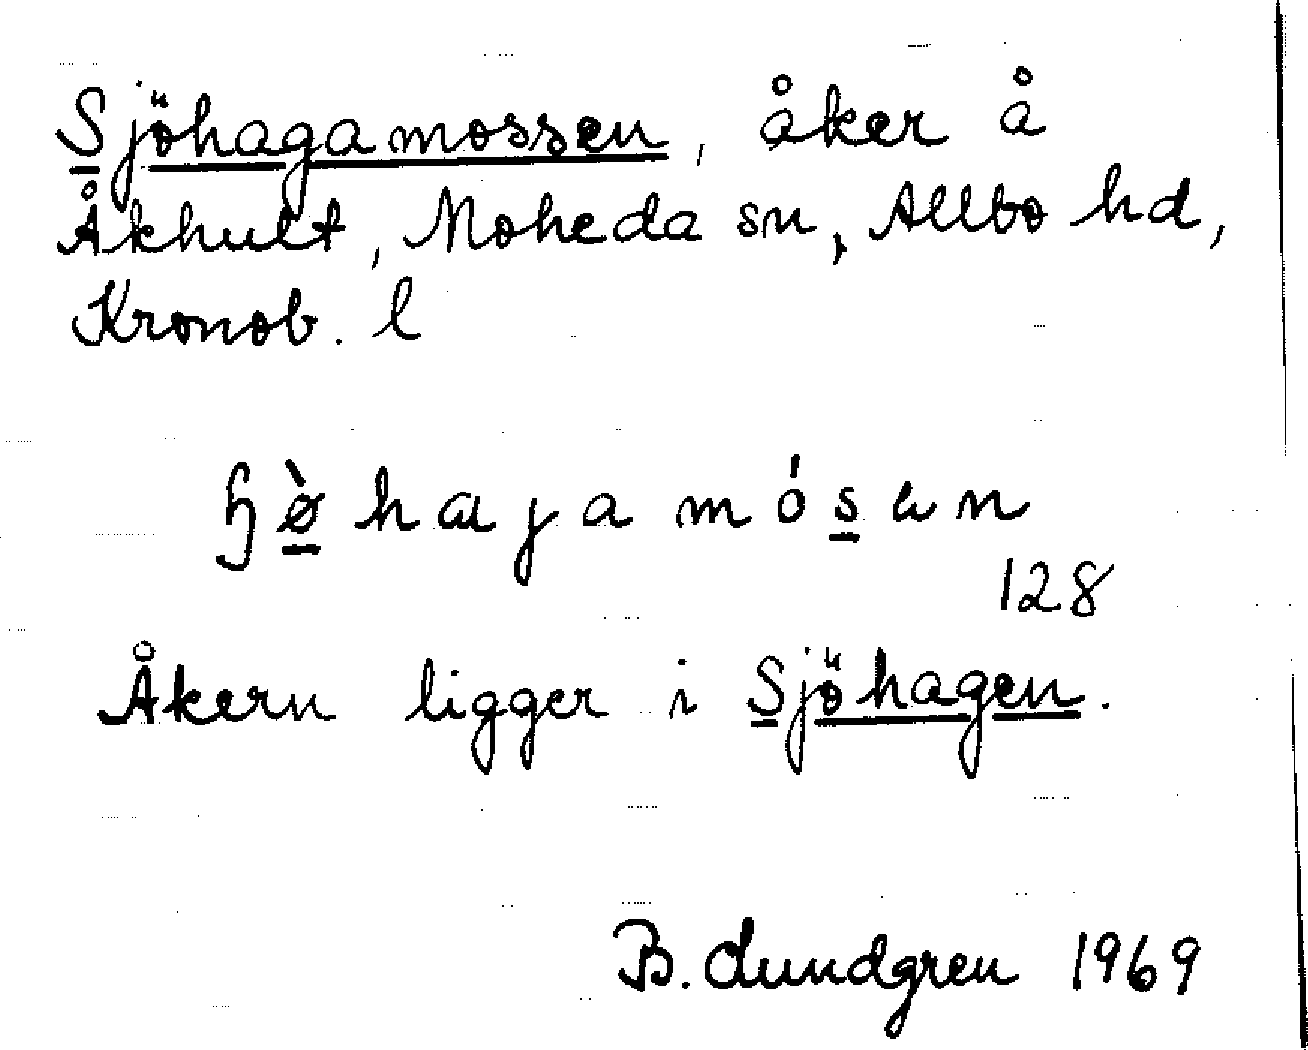 Sjöhagamossen, åker å
Åkhult, Moheda sn, Allbo hd,
Kronob. l
ɧø̀hɑɡamósən
128
Åkern ligger i Sjöhagen.
B. Lundgren 1969